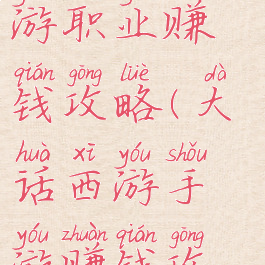 游职业赚
qián gōng lüè dà
钱攻略(大
huà xī yóu shǒu
话西游手
yóu zhuàn qián gōng
游赚钱攻